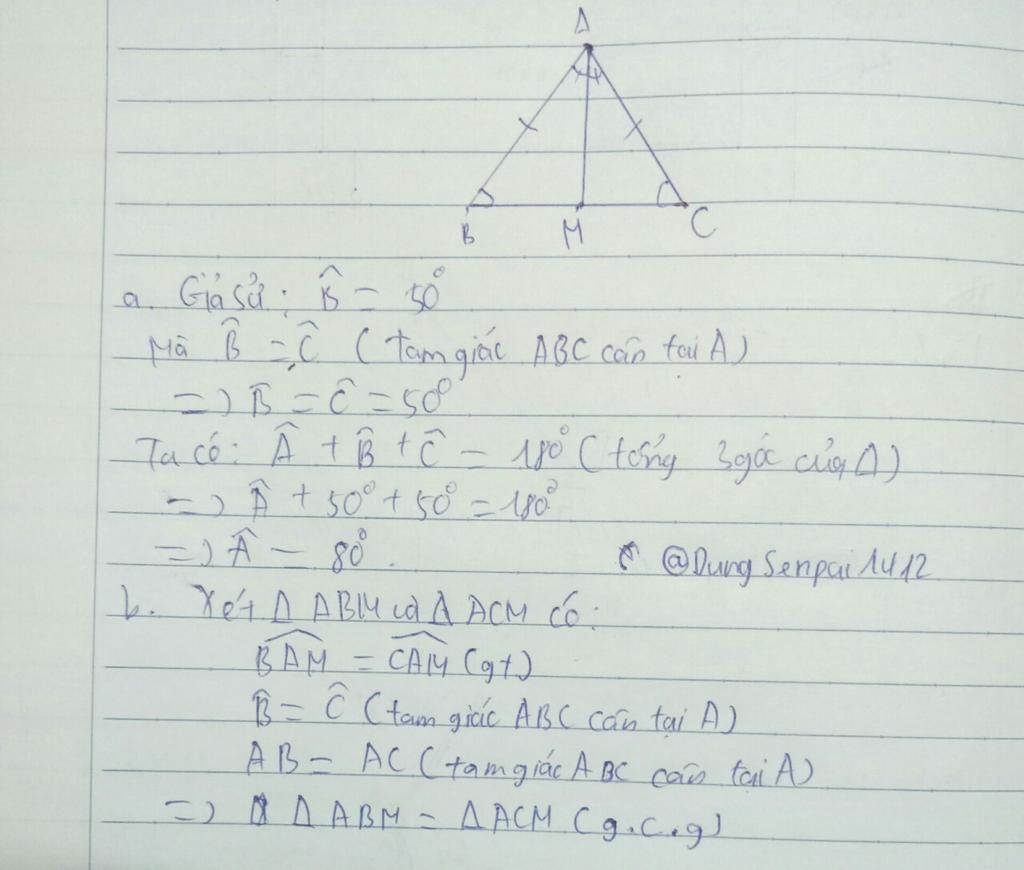 A
B M C
a. Giả sử: B̂ = 50°
Mà B̂ = Ĉ (tam giác ABC cân tại A)
=) B̂ = Ĉ = 50°
Ta có: Â + B̂ + Ĉ = 180° (tổng 3 góc của Δ)
=) Â + 50° + 50° = 180°
=) Â = 80°.
@Dung Senpai 1412
b. Xét Δ ABM và Δ ACM có:
BAM̂ = CAM̂ (gt)
B̂ = Ĉ (tam giác ABC cân tại A)
AB = AC (tam giác ABC cân tại A)
=) Δ ABM = Δ ACM (g.c.g)